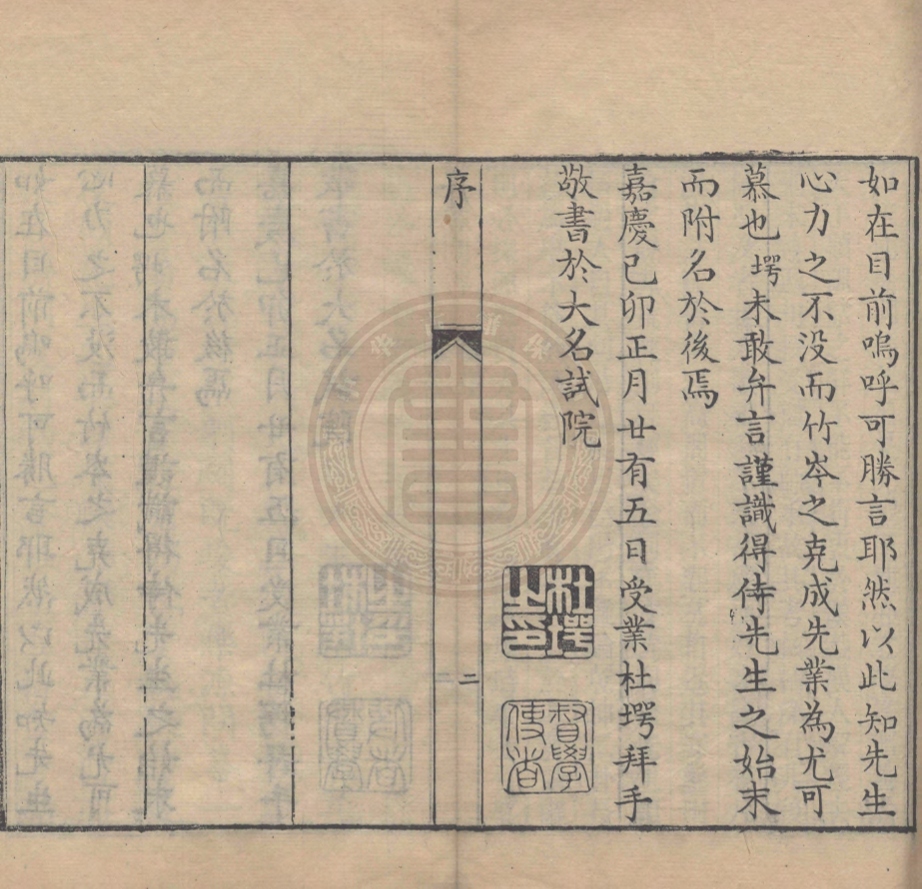 如在目前嗚呼可勝言耶然以此知先生
心力之不没而竹岑之克成先業為尤可
慕也堮未敢弁言謹識得侍先生之始末
而附名於後焉
嘉慶己卯正月廿有五日受業杜堮拜手
敬書於大名試院
杜堮之印
督學使者
序
二